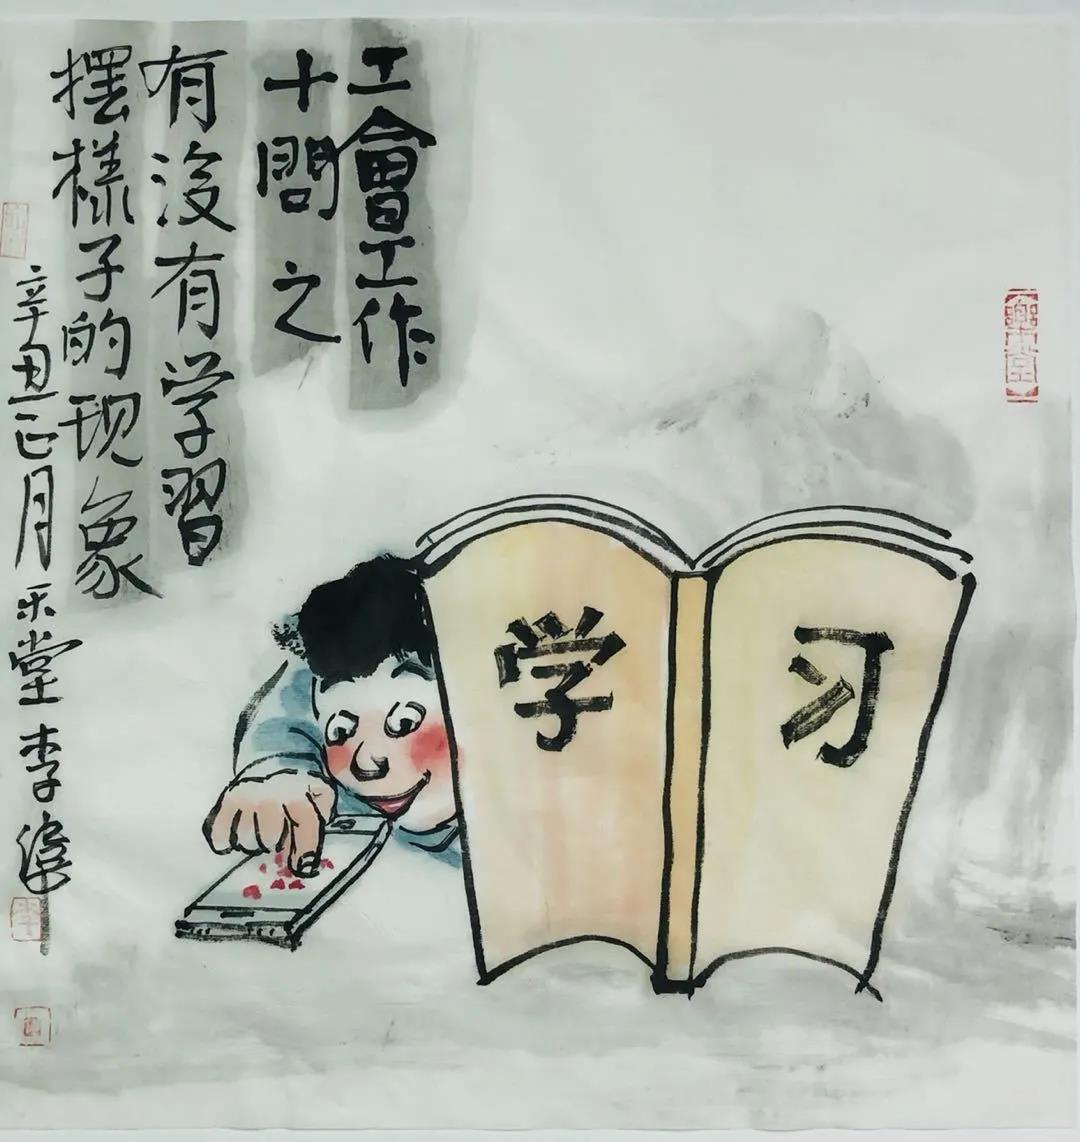 工會工作
十問之
有沒有学習
摆樣子的现象
辛丑正月 乐堂 李
学习